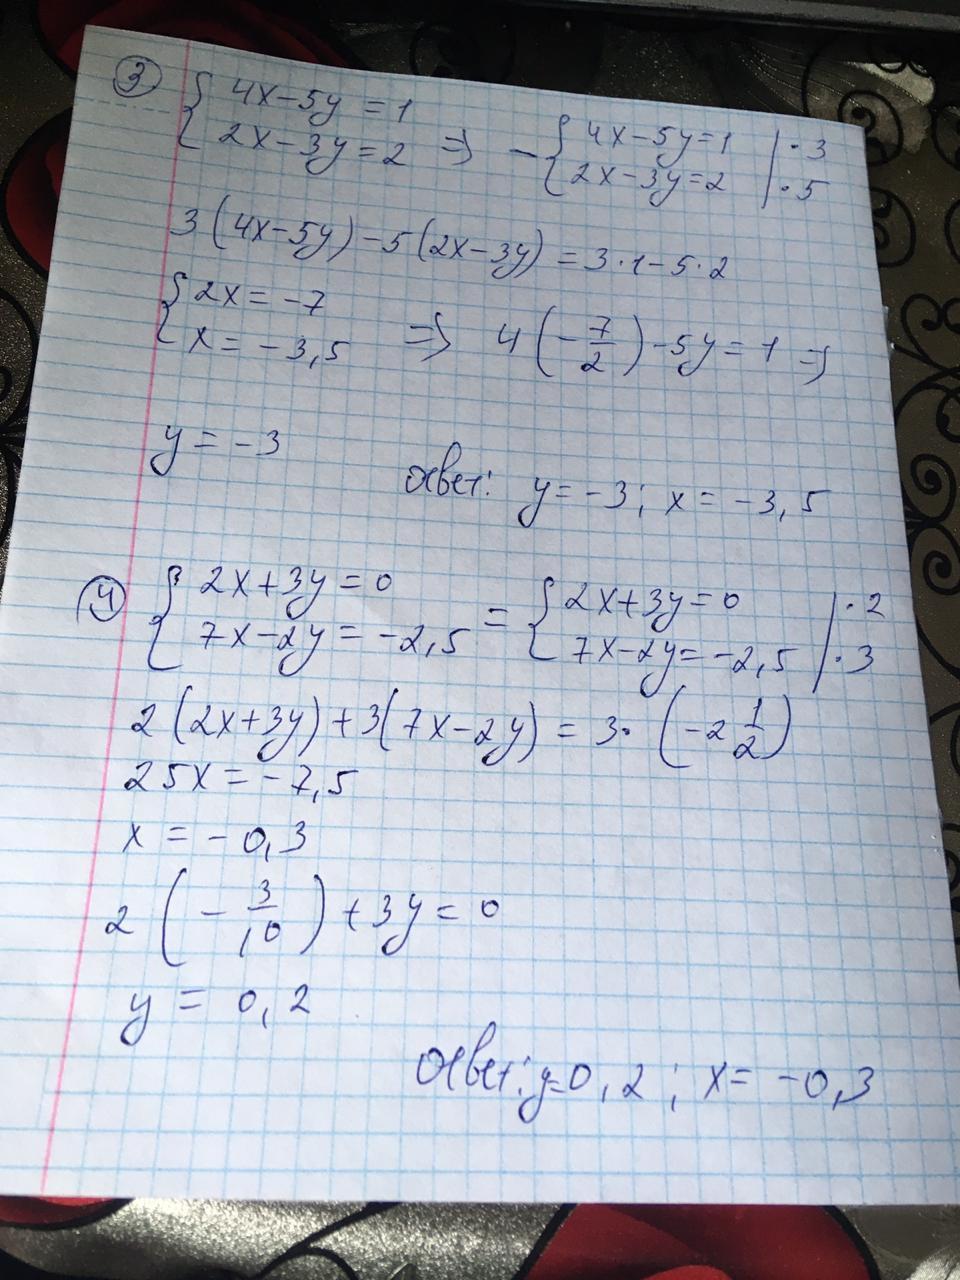 ③ { 4x-5y=1
2x-3y=2 => - { 4x-5y=1 | ·3
2x-3y=2 | ·5
3(4x-5y)-5(2x-3y)=3·1-5·2
{ 2x=-7
x=-3,5 => 4(-7/2)-5y=1 =>
y=-3
Ответ: y=-3; x=-3,5
④ { 2x+3y=0
7x-2y=-2,5 = { 2x+3y=0 | ·2
7x-2y=-2,5 | ·3
2(2x+3y)+3(7x-2y)=3·(-2 1/2)
25x=-7,5
x=-0,3
2(-3/10)+3y=0
y=0,2
Ответ: y=0,2; x=-0,3